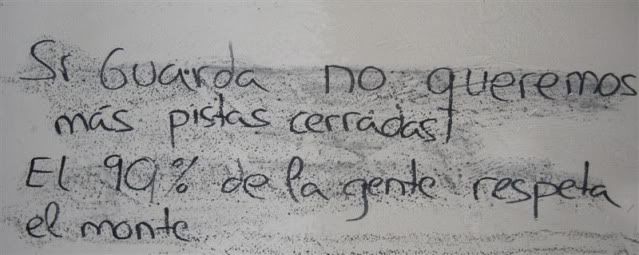 Sr Guarda no queremos
más pistas cerradas!
El 90% de la gente respeta
el monte